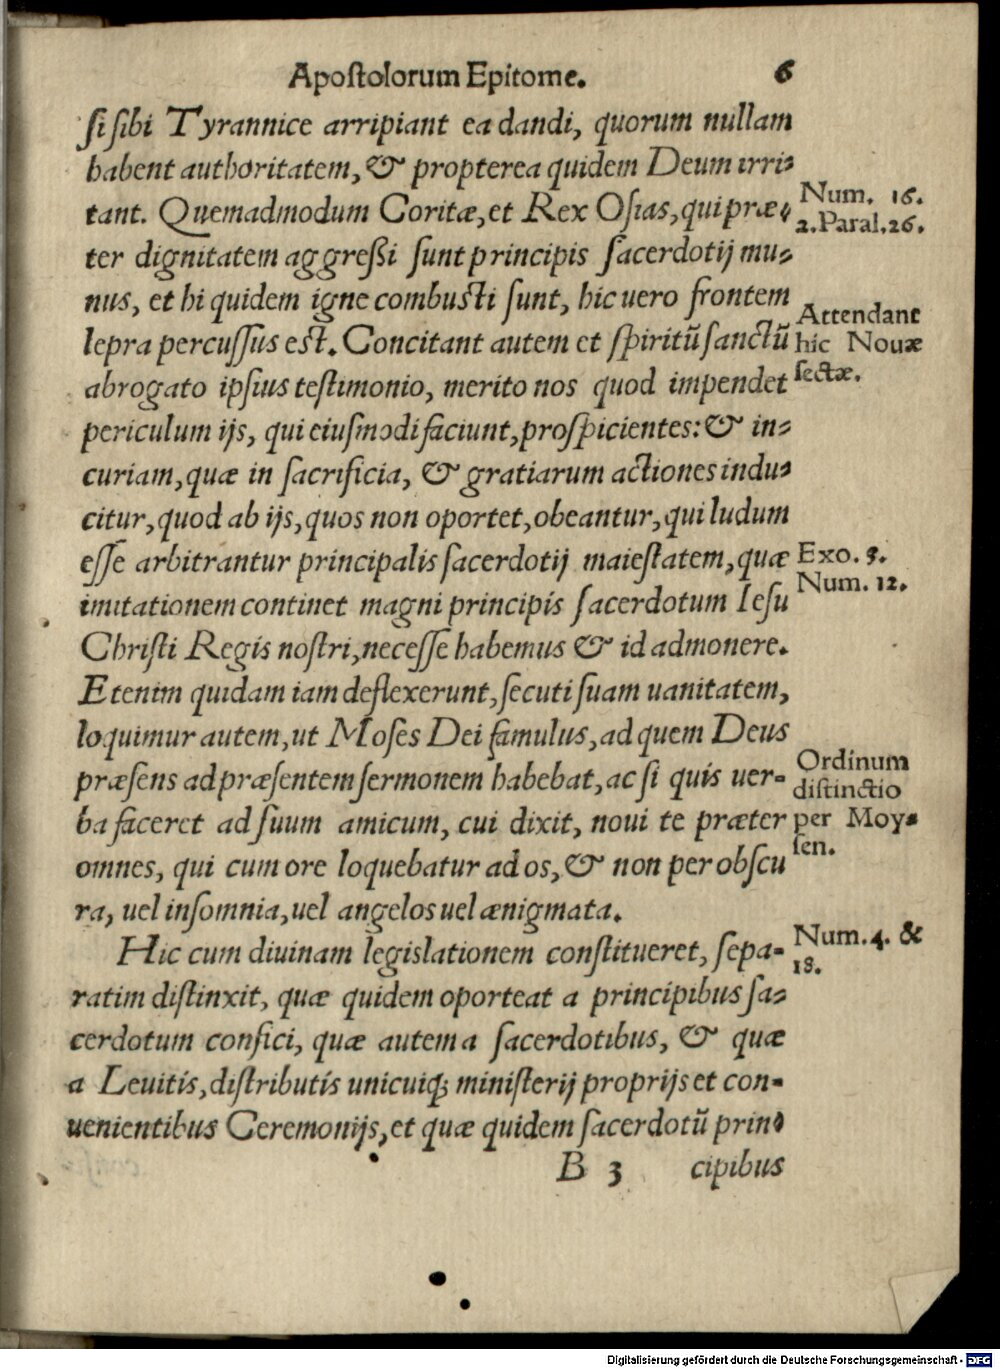 Apostolorum Epitome. 6
si sibi Tyrannice arripiant ea dandi, quorum nullam
habent authoritatem, & propterea quidem Deum irri-
tant. Quemadmodum Coritæ, et Rex Osias, qui præ-
ter dignitatem aggreßi sunt principis sacerdotij mu-
nus, et hi quidem igne combusti sunt, hic uero frontem
lepra percussus est. Concitant autem et spiritũ sanctũ
abrogato ipsius testimonio, merito nos quod impendet
periculum ijs, qui eiusmodi faciunt, prospicientes: & in-
curiam, quæ in sacrificia, & gratiarum actiones indu-
citur, quod ab ijs, quos non oportet, obeantur, qui ludum
esse arbitrantur principalis sacerdotij maiestatem, quæ
imitationem continet magni principis sacerdotum Iesu
Christi Regis nostri, necesse habemus & id admonere.
Etenim quidam iam deflexerunt, secuti suam uanitatem,
loquimur autem, ut Moses Dei famulus, ad quem Deus
præsens ad præsentem sermonem habebat, ac si quis uer-
ba faceret ad suum amicum, cui dixit, noui te præter
omnes, qui cum ore loquebatur ad os, & non per obscu
ra, uel insomnia, uel angelos uel ænigmata.
Hic cum diuinam legislationem constitueret, sepa-
ratim distinxit, quæ quidem oporteat a principibus sa-
cerdotum confici, quæ autem a sacerdotibus, & quæ
a Leuitis, distributis unicuiq; ministerij proprijs et con-
uenientibus Ceremonijs, et quæ quidem sacerdotũ prin-
B 3 cipibus
Num. 16.
2. Paral. 26.
Attendant
hic Nouæ
sectæ.
Exo. 3.
Num. 12.
Ordinum
distinctio
per Moy-
sen.
Num. 4. &
18.
Digitalisierung gefördert durch die Deutsche Forschungsgemeinschaft - DFG